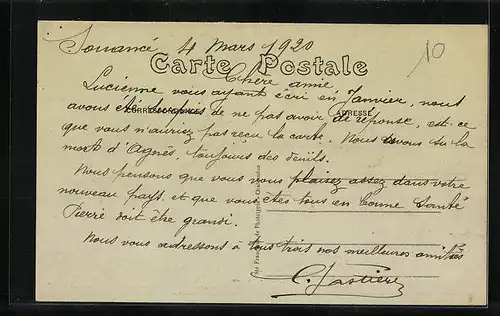 Souancé 4 Mars 1920
10
Carte Postale
Chère amie,
Lucienne vous ayant écrit en Janvier, nous
CORRESPONDANCE
ADRESSE
avons été de ne pas avoir de réponse, est-ce
que vous n'auriez pas reçu la carte. Nous avons su la
mort d'Agnès, toujours des deuils.
Nous pensons que vous vous plaisez assez dans votre
nouveau pays et que vous êtes tous en bonne santé
Pierre doit être grandi.
Nous vous adressons à tous trois nos meilleures amitiés